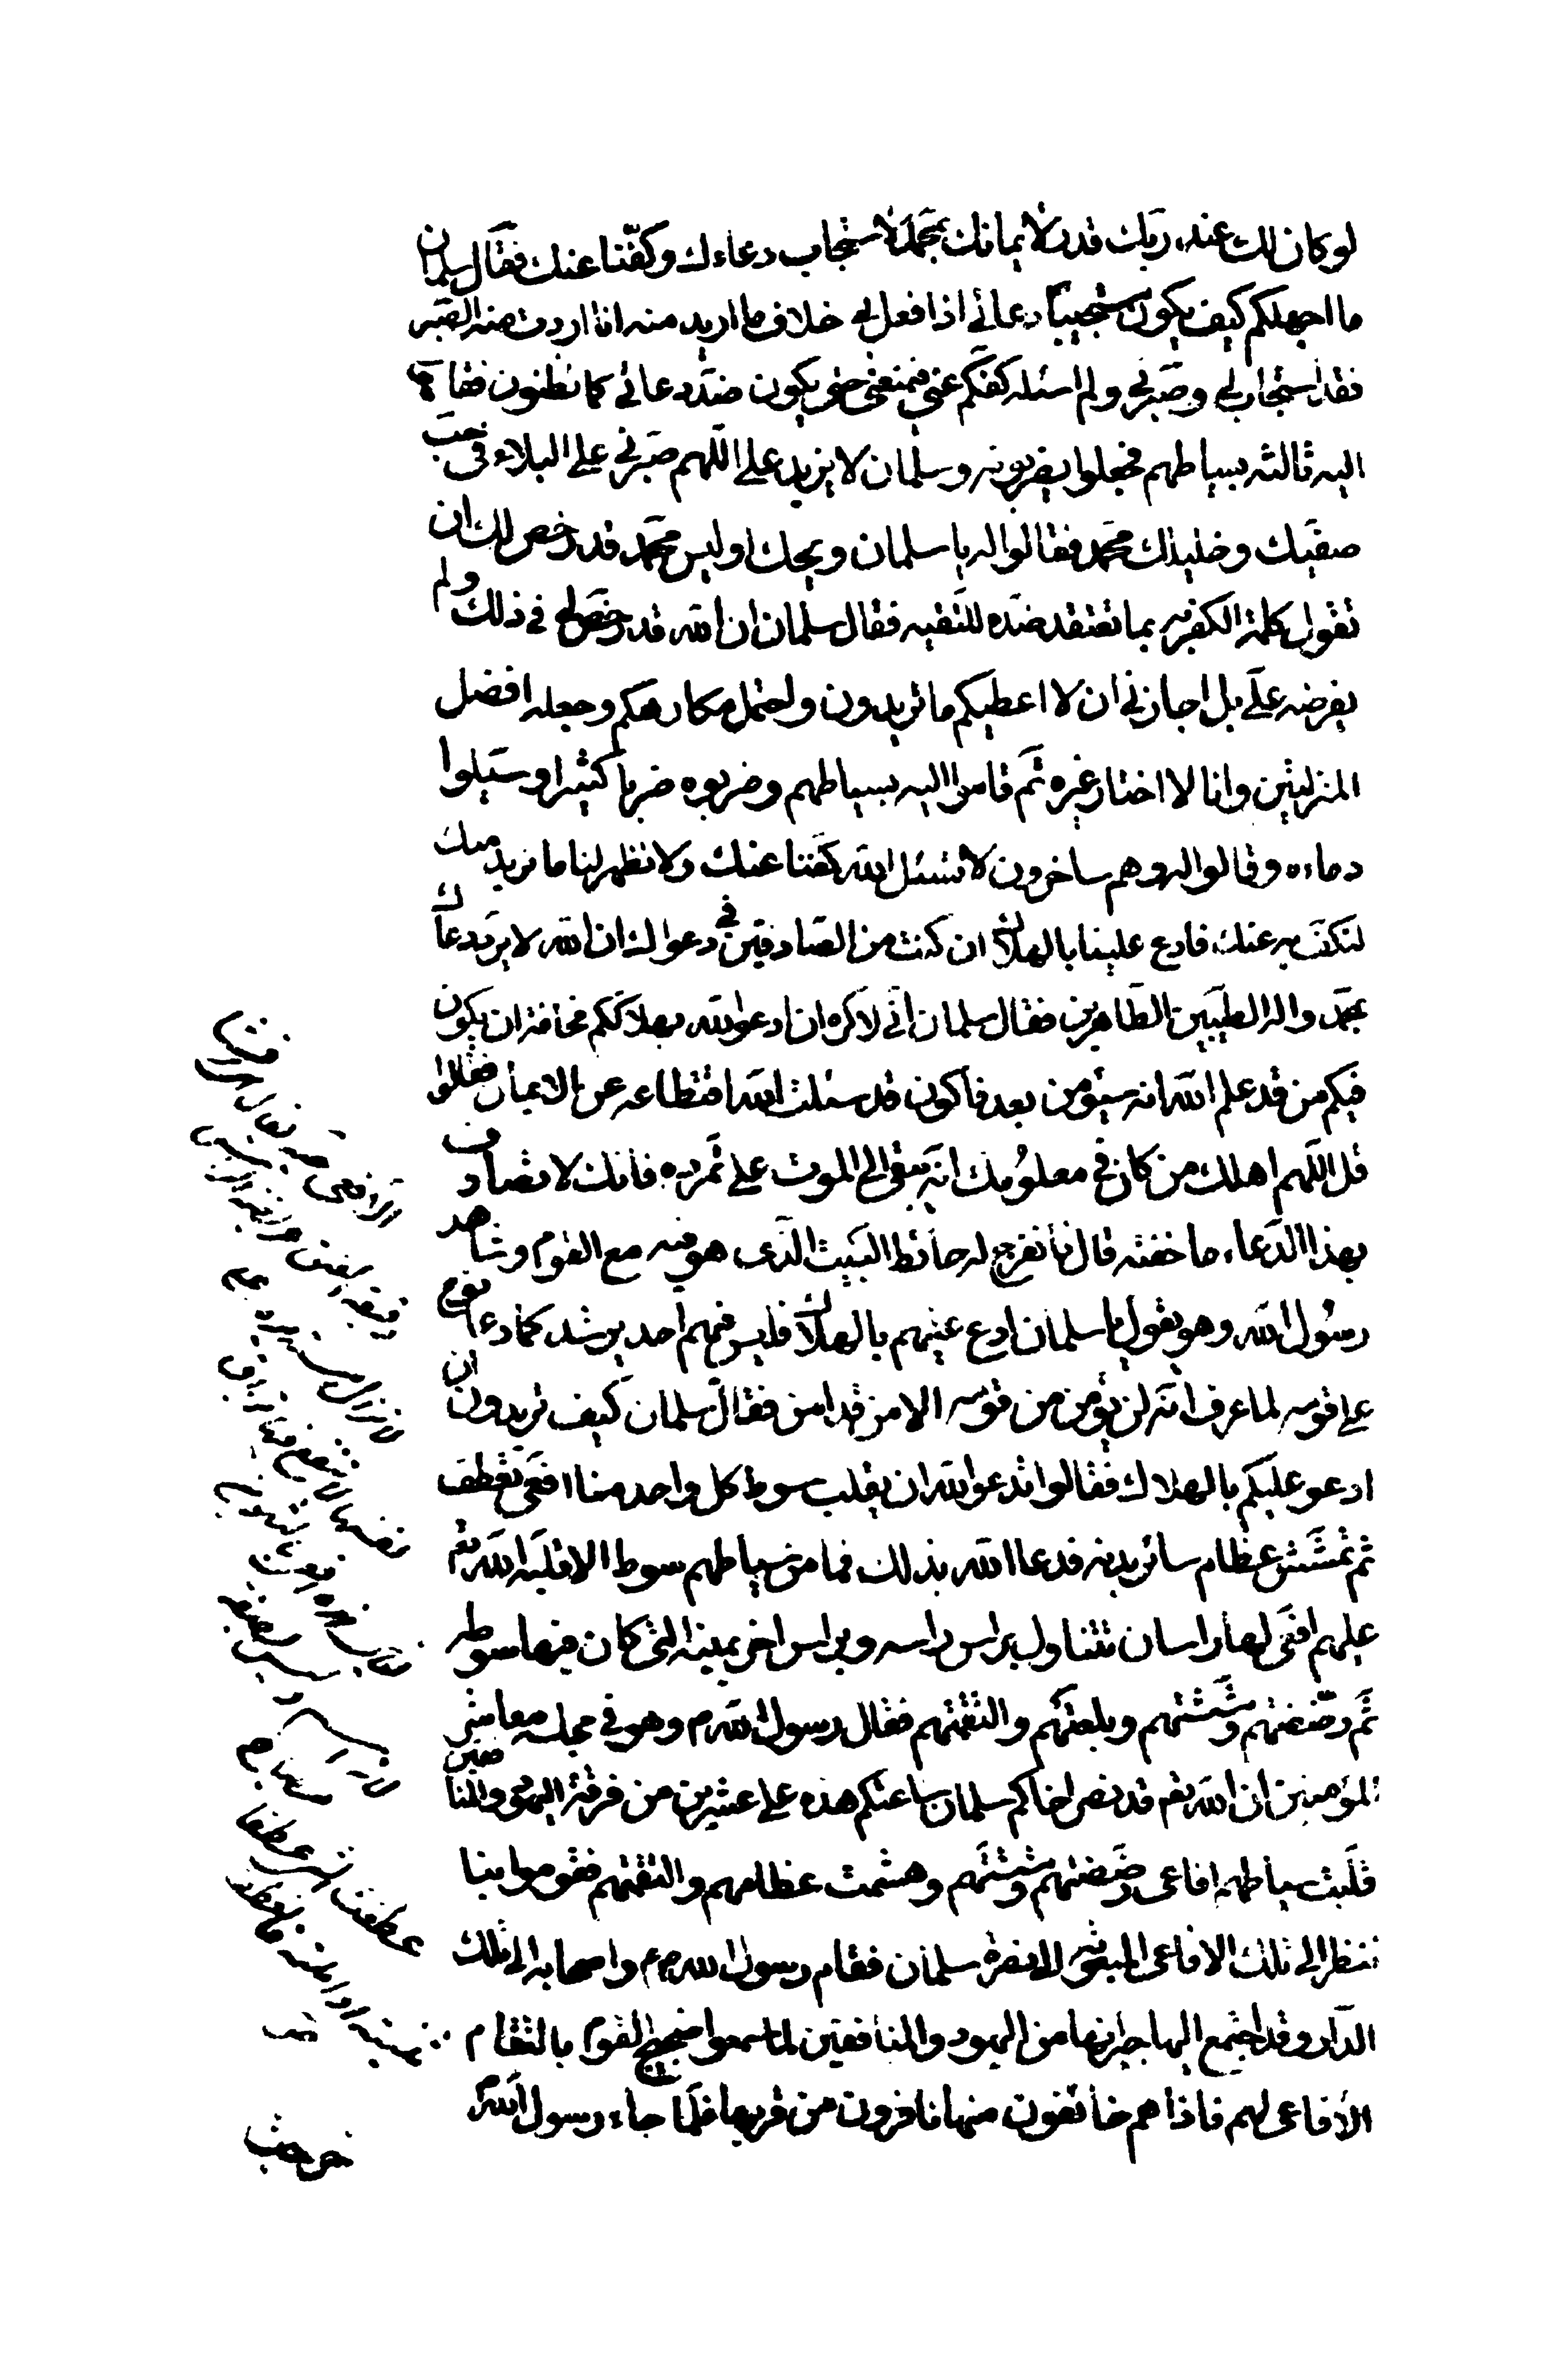 لو كان لك عند ربك قدر لايمانك بمحمد لاستجاب دعاءك وكفّنا عنك فقال سلمان
ما اجهلكم كيف يكون مستجيبا دعائي اذا فعل بي خلاف ما اريد منه انا اردت منه الصبر
فقد استجاب لي وصبّرني ولم اسئله كفّكم عني فيمنعني حتى يكون ضد دعائي كما تظنون فقاموا
اليه ثالثه بسياطهم فجعلوا يضربونه وسلمان لا يزيد على اللهم صبّرني على البلاء في حبّ
صفيك وخليلك محمد فقالوا له يا سلمان ويحك اوليس محمد قد رخص لك ان
تقول كلمة الكفر به بما تعتقد ضده للتقيه فقال سلمان ان الله قد رخّص لي في ذلك ولم
يفرضه علي بل اجازني ان لا اعطيكم ما تريدون واحتمل مكارهكم وجعله افضل
المنزلتين وانا لا اختار غيره ثم قاموا اليه بسياطهم وضربوه ضربا كثيرا وسيلوا
دماءه وقالوا له وهم ساخرون لا تسئل الله كفّنا عنك ولا تظهر لنا ما نريد منك
لنكف به عنك فادع علينا بالهلاك ان كنت من الصادقين في دعواك ان الله لا يرد دعاك
بمحمد واله الطيبين الطاهرين فقال سلمان اني لاكره ان ادعو الله بهلاككم مخافة ان يكون
فيكم من قد علم الله انه سيؤمن بعد فاكون قد سئلت الله اقتطاعه عن الايمان فقالوا
قل اللهم اهلك من كان في معلومك انه يبقى الى الموت على تمرده فانك لا تصادف
بهذا الدعاء ما خفته قال فانفرج له حائط البيت الذي هو فيه مع القوم وشاهد
رسول الله وهو يقول يا سلمان ادع عليهم بالهلاك فليس فيهم احد يرشد كما دعا نوح
على قومه لما عرف انه لن يؤمن من قومه الا من قد امن فقال سلمان كيف تريدون ان
ادعو عليكم بالهلاك فقالوا تدعو الله ان يقلب سوط كل واحد منا افعى تعطف
ثم تمشش عظام سائر بدنه فدعا الله بذلك فما من سياطهم سوط الا قلبه الله تع
عليهم افعى لها راسان تتناول براس راسه وبراس اخر يمينه التي كان فيها سوطه
ثم رضّضتهم ومشّشتهم وبلعتهم والتقمتهم فقال رسول الله ص وهو في مجلسه معاشر
المؤمنين ان الله تع قد نصر اخاكم سلمان ساعتكم هذه على عشرين من فرقة اليهود والمنافقين
قلبت سياطهم افاعي رضّضتهم ومشّشتهم وهشمت عظامهم والتقمتهم فقوموا بنا
ننظر الى تلك الافاعي المبعوثه لنصرة سلمان فقام رسول الله ص واصحابه الى تلك
الدار وقد اجتمع اليها جيرانها من اليهود والمنافقين لما سمعوا ضجيج القوم بالتقام
الأفاعي لهم فاذا هم خائفون منها نافرون من قربها فلما جاء رسول الله